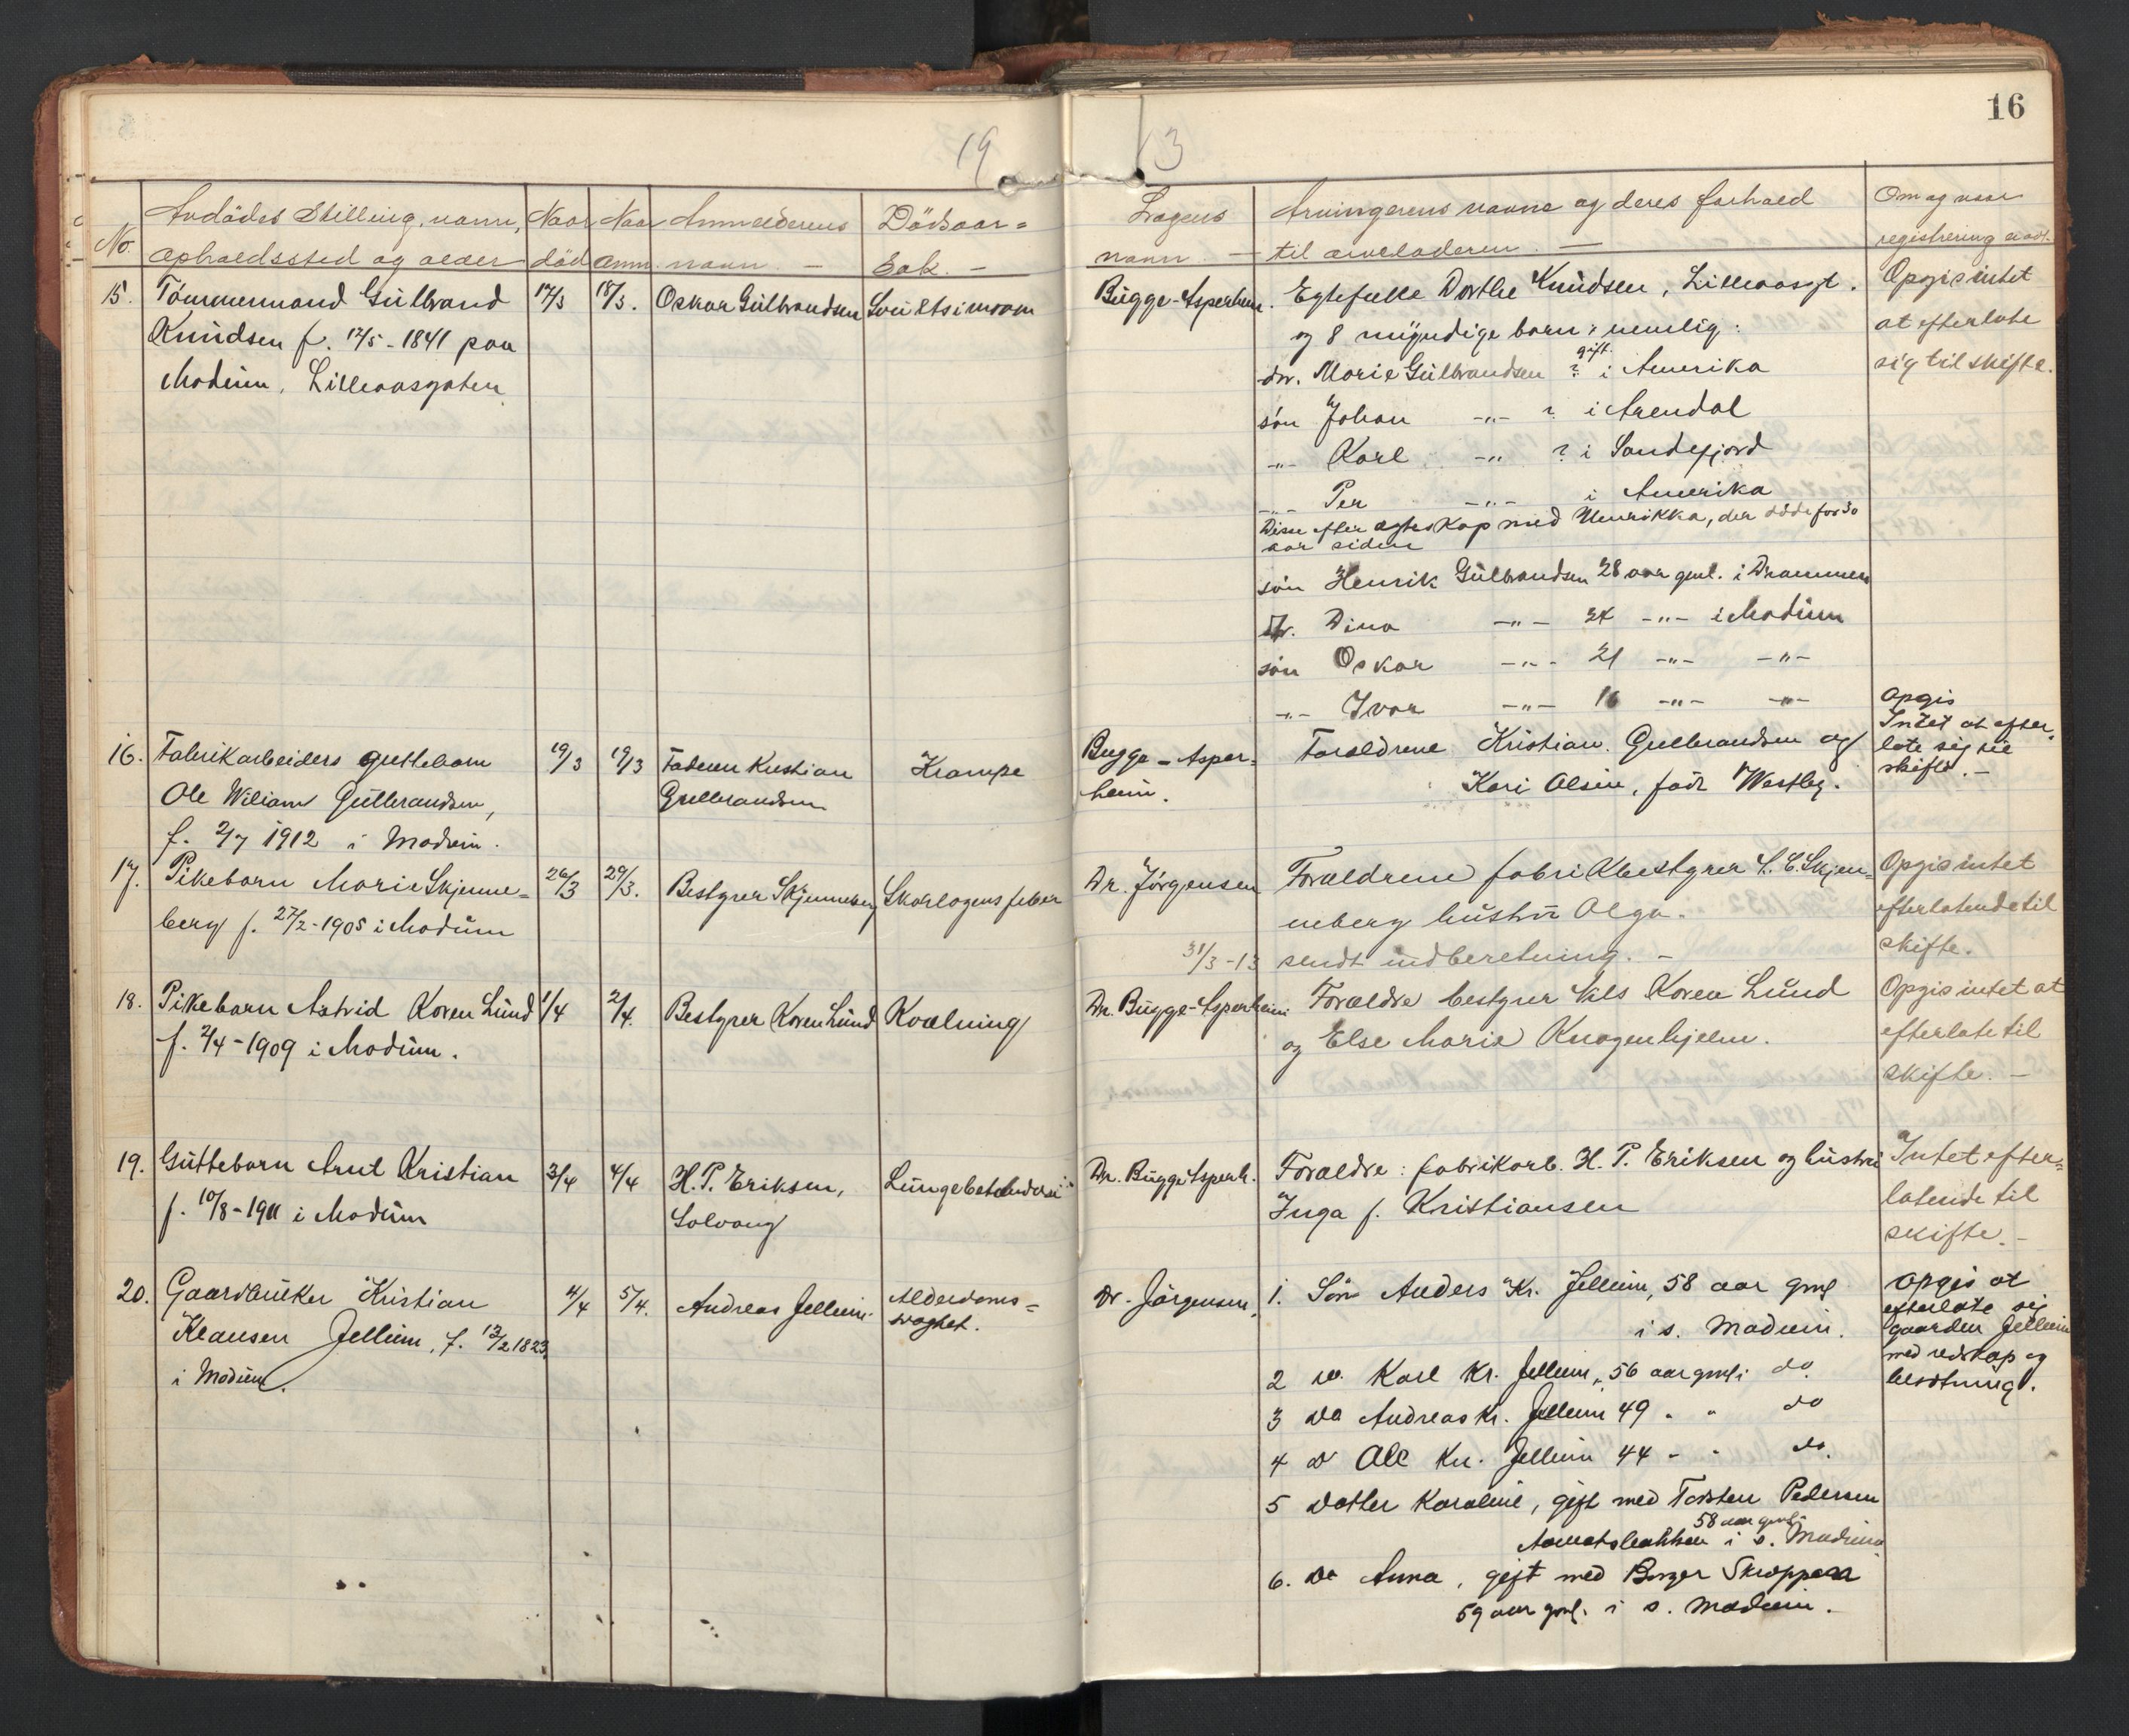 16
19 13
No. Avdödes Stilling, navn, opholdssted og alder
Naar död
Naar anm.
Anmelderens navn. —
Dödsaar=
sak. —
Lægens navn —
Arvingerens navne og deres forhold
til arveladeren. —
Om og naar
registrering
15. Tömmermand Gülbrand
Knüdsen f. 12/5 - 1841 paa
Modüm, Lilleaasgaten
17/3
18/3.
Oskar Gülbrandsen
Bügge-Asperheim.
Egtefælle Dorthe Knüdsen, Lilleaasgt.
og 8 myndige barn: nemlig:
dtr. Marie Gülbrandsen ? gift i Amerika
sön Johan -"- ? i Arendal
-"- Karl -"- ? i Sandefjord
-"- Per -"- i Amerika
Disse efter egteskap med Henrikka, der döde for 30
aar siden
sön Henrik Gülbrandsen 28 aar gml. i Drammen
dtr. Dina -"- 24 -"- i Modüm
sön Oskar -"- 21 -"- -"-
-"- Ivar -"- 16 -"- -"-
Opgis intet
at efterlate
sig til skifte.
16. Fabrikarbeiders guttebarn
Ole Wiliam Gülbrandsen,
f. 2/7 1912 i Modum.
19/3
19/3
Faderen Kristian
Gulbrandsen
Krampe
Bugge - Asper=
heim.
Foraldrene Kristian Gulbrandsen og
Kari Olsen, född Westby.
Opgis
Intet at efter=
late sig til
skifte. —
17. Pikebarn Marie Skjenne=
berg f. 27/2-1905 i Modüm
26/3
29/3.
Bestyrer Skjenneberg
Skarlagensfeber
Dr. Jörgensen
Foraldrene fabrikbestyrer S. C. Skjen=
neberg hüstrü Olga.
31/3-13 sendt indberetning. —
Opgis intet
efterlatende til
skifte.
18. Pikebarn Astrid Koren Lünd
f. 2/4-1909 i Modüm.
1/4
2/4.
Bestyrer Koren Lünd
Kvælning
Dr. Bügge-Asperheim
Foraldre bestyrer Nils Koren Lünd
og Else Marie Knagenhjelm.
Opgis intet at
efterlate til
skifte. —
19. Gütteborn Arnt Kristian
f. 10/8-1911 i Modüm
3/4
4/4
H. P. Eriksen,
Solvang
Lüngebetændelse
Dr. Bügge Asperh.
Foraldre: fabrikarb. H. P. Eriksen og hüstrü
Inga f. Kristiansen
Intet efter=
latende til
skifte. —
20. Gaardbrüker Kristian
Klausen Jellum, f. 12/2 1823,
i Modum.
4/4
5/4.
Andreas Jellum.
Alderdoms=
svaghet.
Dr. Jörgensen,
1. Sön Anders Kr. Jellum, 58 aar gml
i s. Modum.
2 do. Karl Kr. Jellum, 56 aar gml i do.
3 do Andreas Kr. Jellum 49 " " do
4 do Ole Kr. Jellum 44 " " do.
5 Datter Karoline, gift med Torsten Pedersen
58 aar gml.
i s. Modum
6. do Anna, gift med Borger Skreppern
59 aar gml. i s. Modum.
Opgis at
efterlate sig
gaarden Jellum
med redskap og
besætning.